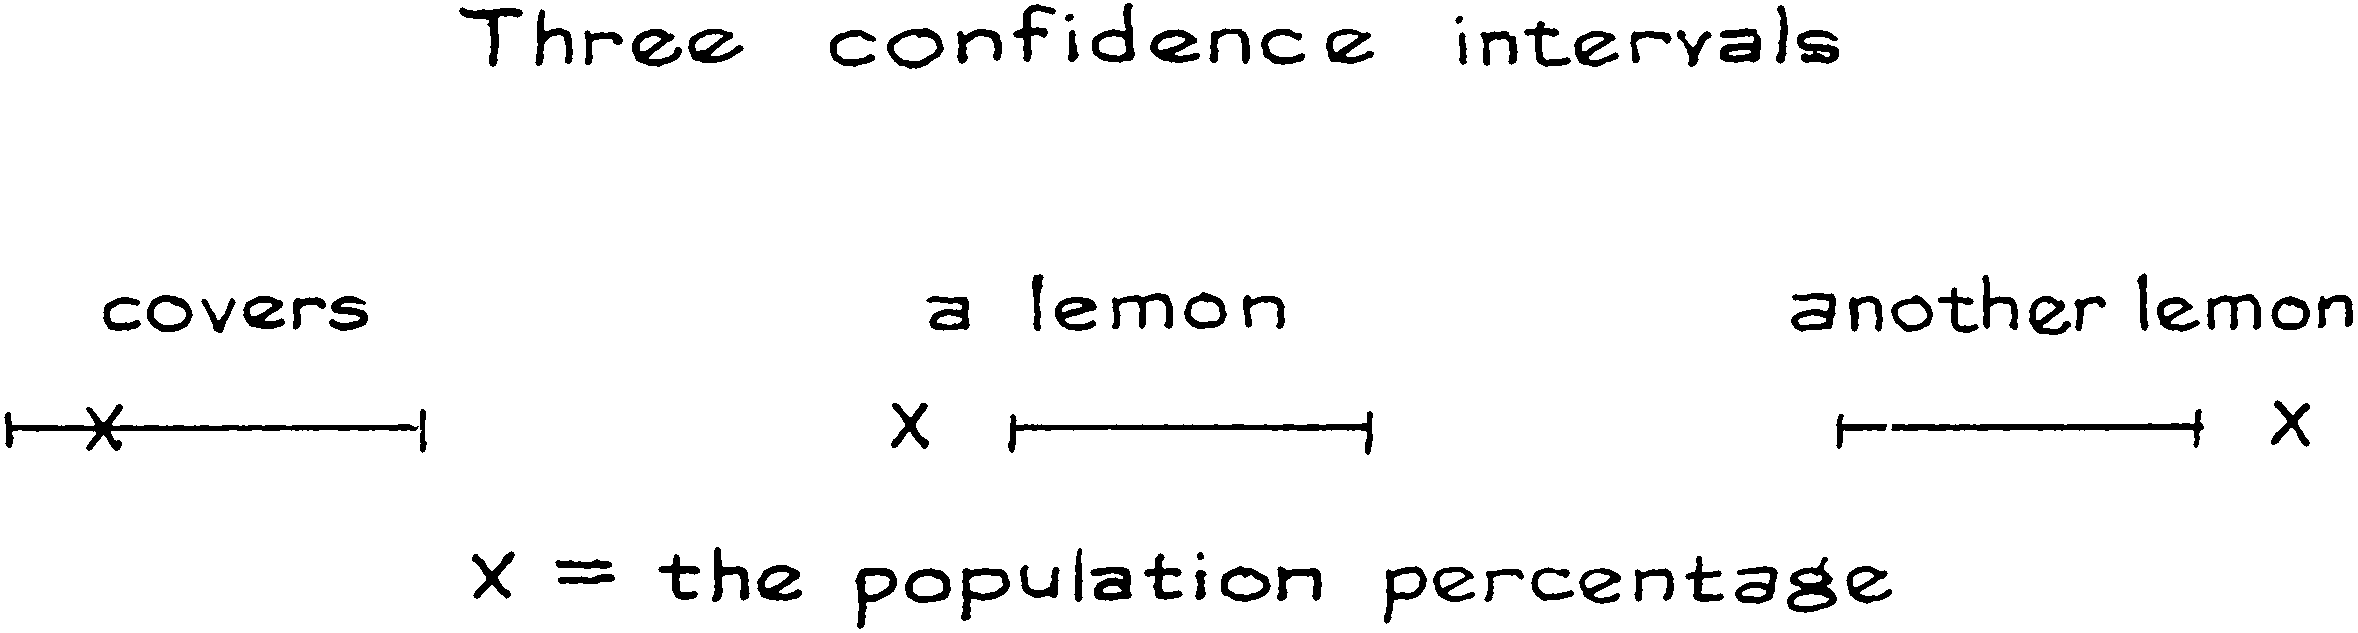 Three confidence intervals
covers a lemon another lemon
x x x
x = the population percentage